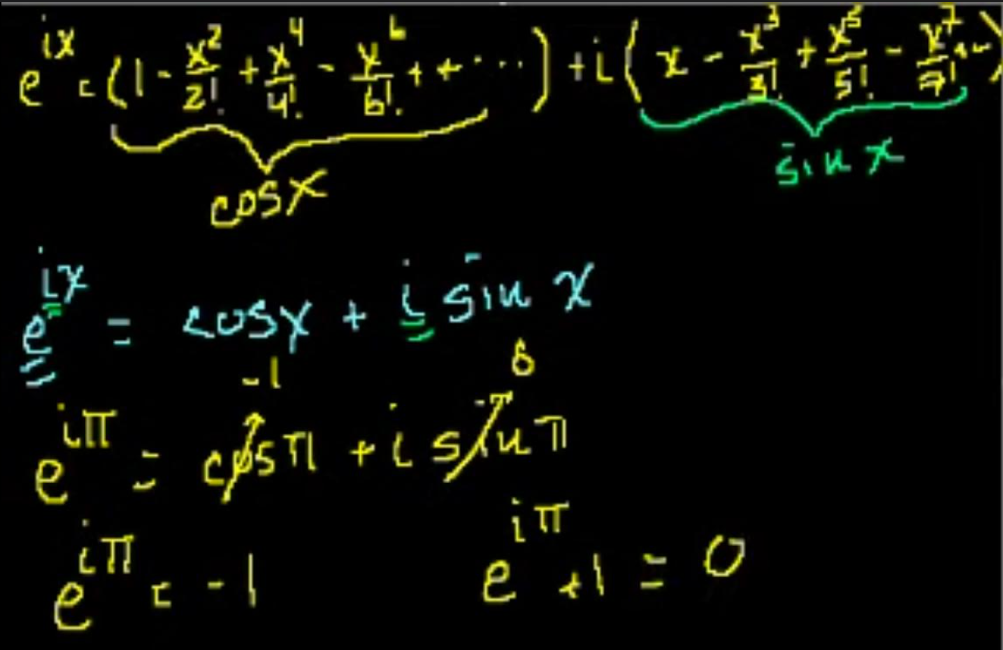 e^{ix} = (1 - x²/2! + x⁴/4! - x⁶/6! + + ...) + i(x - x³/3! + x⁵/5! - x⁷/7! + ...)
cosx sin x
e^{ix} = cosx + i sin x
-1 0
e^{iπ} = cosπ + i sinπ
e^{iπ} = -1 e^{iπ} + 1 = 0